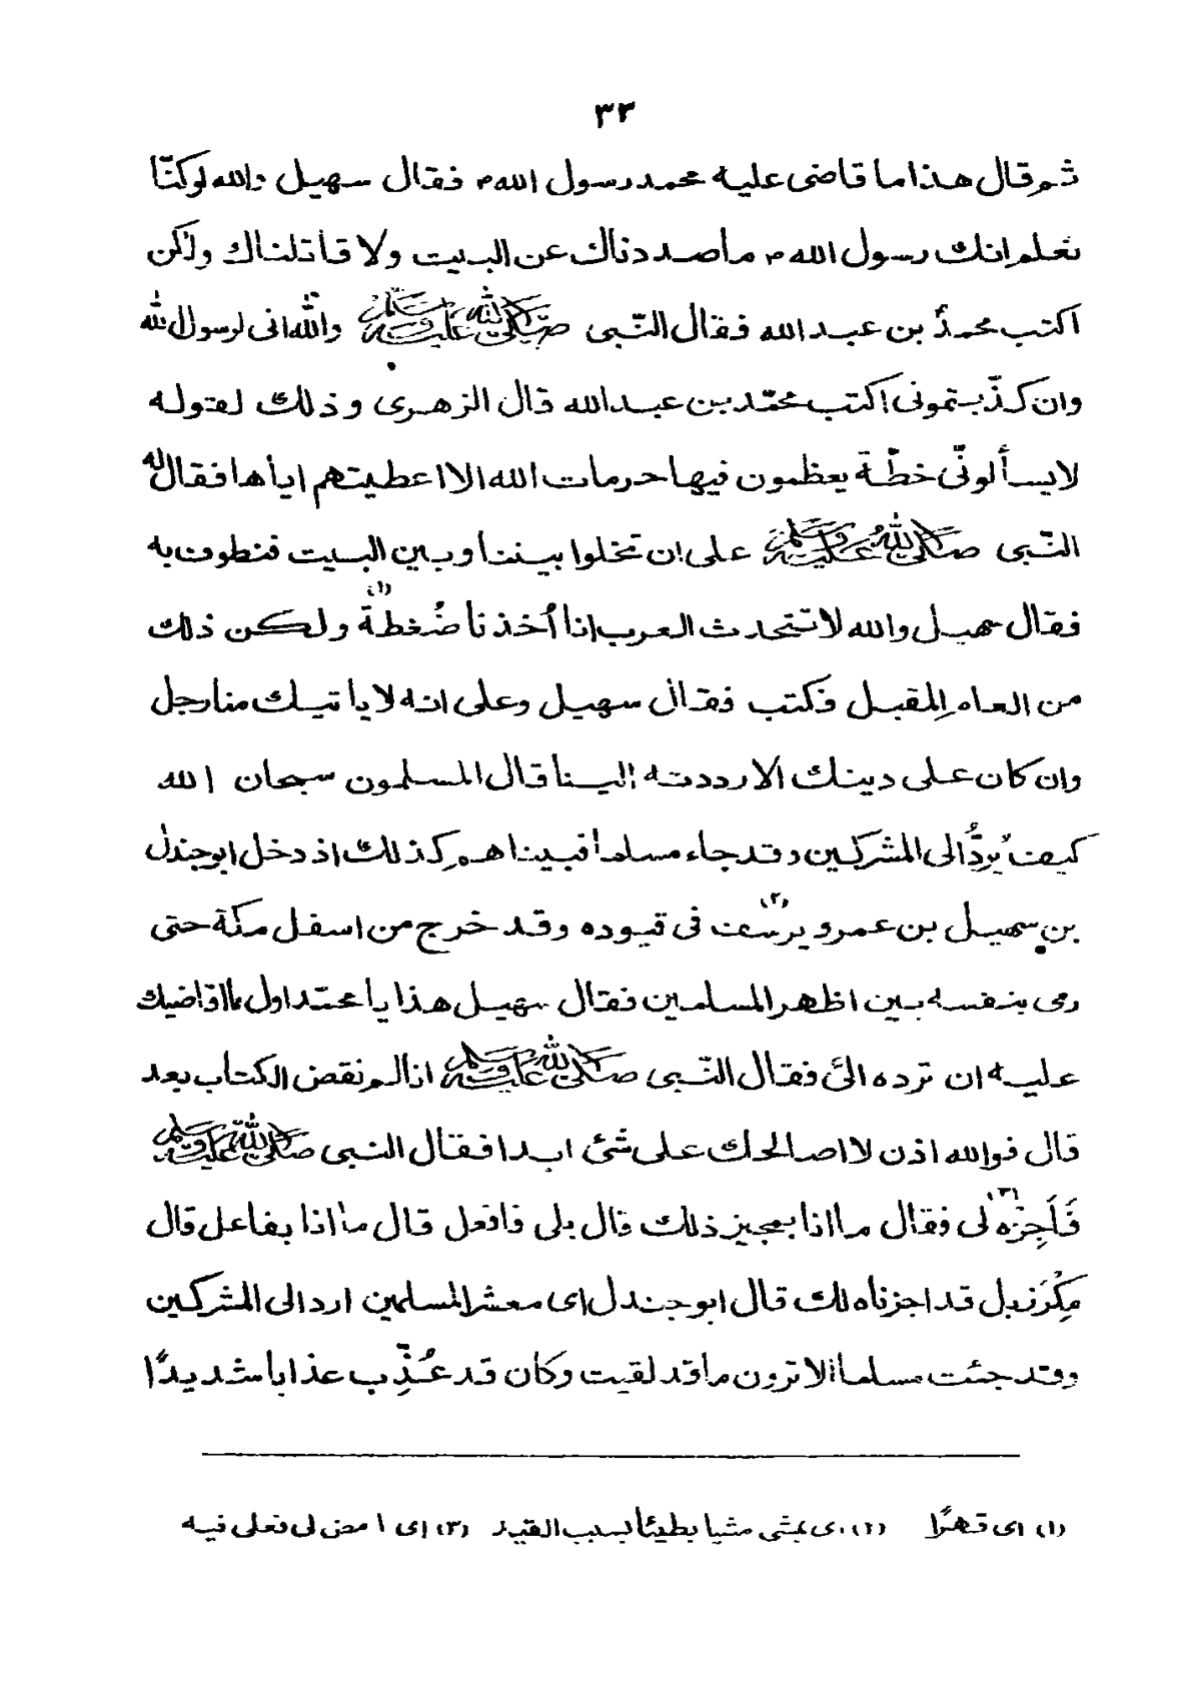 ٣٣
ثم قال هذا ما قاضى عليه محمد رسول الله م فقال سهيل والله لو كنّا
نعلم انك رسول الله م ما صددناك عن البيت ولا قاتلناك ولكن
اكتب محمدُ بن عبد الله فقال النّبى صلى الله عليه وسلم والله انى لرسول الله
وان كذّبتمونى اكتب محمّد بن عبد الله قال الزهرى وذلك لقوله
لا يسألونّى خطّة يعظمون فيها حرمات الله الا اعطيتهم اياها فقال له
النّبى صلى الله عليه وسلم على ان تخلوا بيننا وبين البيت فنطوف به
فقال سهيل والله لا تتحدث العرب انا أُخذنا ضُغطة (١) ولكن ذلك
من العام المقبل فكتب فقال سهيل وعلى انه لا ياتيك منا رجل
وان كان على دينك الا رددته الينا قال المسلمون سبحان الله
كيف يُردُّ الى المشركين وقد جاء مسلما فبينا هم كذلك اذ دخل ابو جندل
بن سهيل بن عمرو يرسف (٢) فى قيوده وقد خرج من اسفل مكة حتى
رمى بنفسه بين اظهر المسلمين فقال سهيل هذا يا محمّد اول ما اقاضيك
عليه ان ترده الىّ فقال النّبى صلى الله عليه وسلم انا لم نقض الكتاب بعد
قال فوالله اذن لا اصالحك على شئ ابدا فقال النبى صلى الله عليه وسلم
فَأَجِزْه (٣) لى فقال ما انا بمجيز ذلك قال بلى فافعل قال ما انا بفاعل قال
مِكْرَز بل قد اجزناه لك قال ابو جندل اى معشر المسلمين ارد الى المشركين
وقد جئت مسلما الا ترون ما قد لقيت وكان قد عُذِّب عذابا شديدًا
(١) اى قهرًا (٢) اى يمشى مشيا بطيئاً بسبب القيد (٣) اى امض لى فعلى فيه